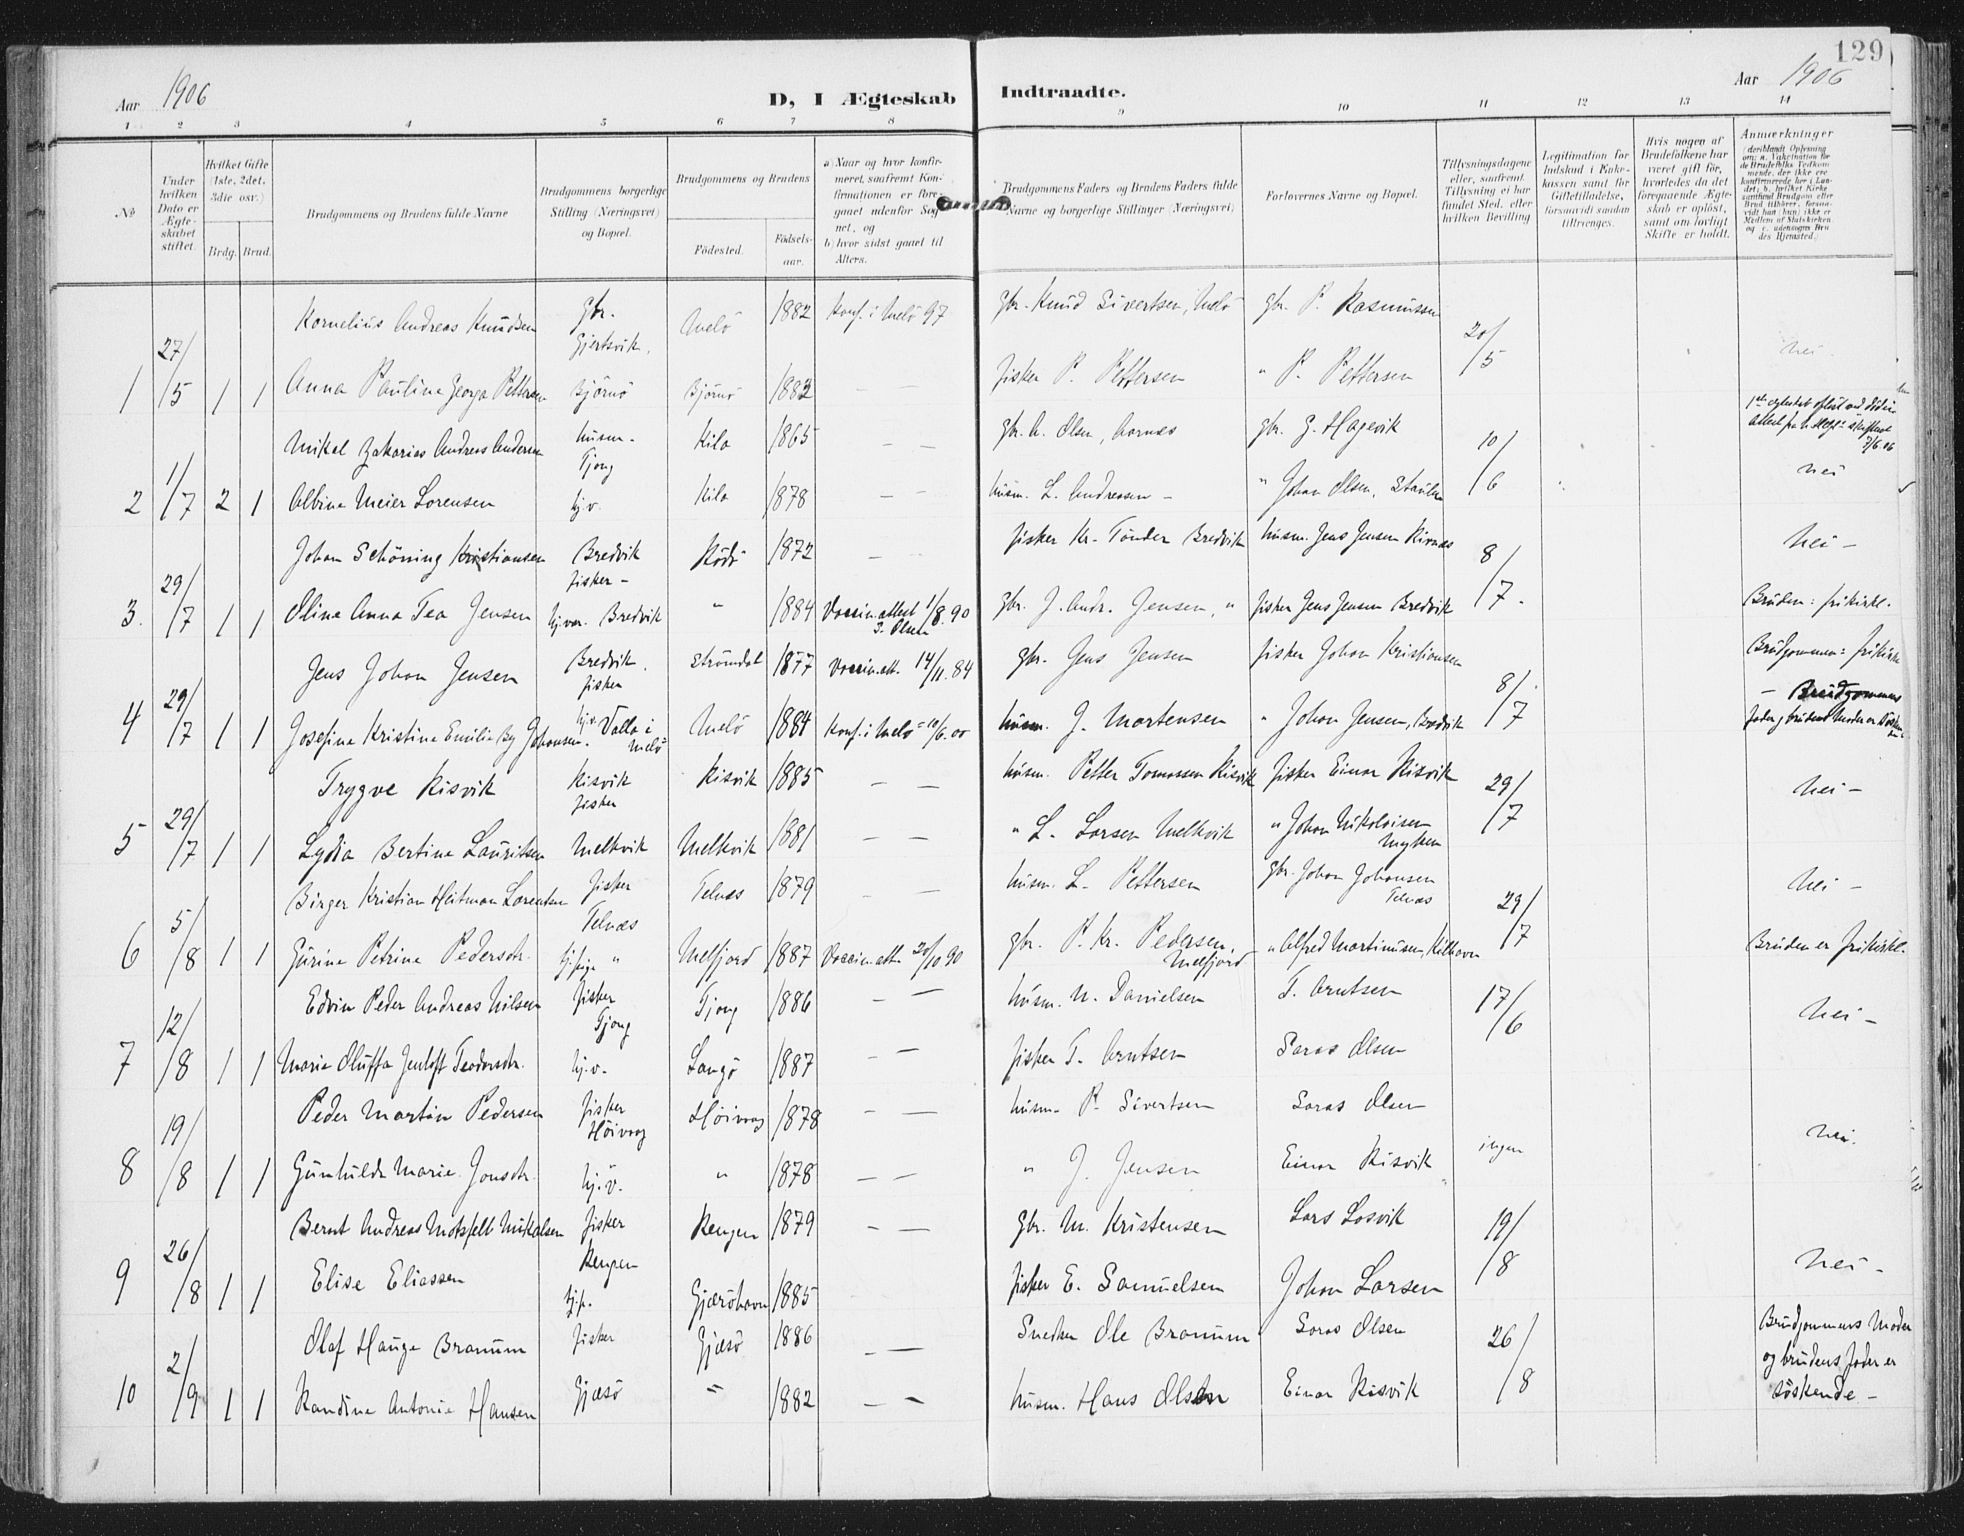 129
Aar 1906
D, I Ægteskab Indtraadte.
Aar 1906
1 2 3 4 5 6 7 8 9 10 11 12 13 14
No
Under hvilken Dato er Ægteskabet stiftet.
Hvilket Gifte (1ste, 2det, 3die osv.)
Brdg. Brud.
Brudgommens og Brudens fulde Navne
Brudgommens borgerlige Stilling (Næringsvei) og Bopæl.
Brudgommens og Brudens
Fødested.
Fødselsaar.
a) Naar og hvor konfirmeret, saafremt Konfirmationen er foregaaet udenfor Sognet, og
b) hvor sidst gaaet til Alters.
Brudgommens Faders og Brudens Faders fulde Navne og borgerlige Stillinger (Næringsvei)
Forlovernes Navne og Bopæl.
Tillysningsdagene eller, saafremt Tillysning ei har fundet Sted, efter hvilken Bevilling
Legitimation for Indskud i Enkekassen samt for Giftetilladelse, forsaavidt saadan tiltrænges.
Hvis nogen af Brudefolkene har været gift før, hvorledes da det foregaaende Ægteskab er opløst, samt om lovligt Skifte er holdt.
Anmærkninger
Kornelius Andreas Knudsen gbr. Gjertsvik. Melö 1882 Konf. i Melö 97 gbr. Knud Sivertsen, Melö gbr. P. Rasmussen
1 27/5 1 1 Anna Pauline Georga Pettersen Bjørnö Bjørnö 1882 — — fisker P. Pettersen " P. Pettersen 20/5 nei.
Mikal Zakarias Andreas Andersen husm. Tjong Kila 1865 — — gbr. A. Olsen, Aarnes gbr. G. Hagevik
2 1/7 2 1 Albine Meier Lorensen hj.v. Kila 1878 — — husm. L. Andreasen — " Johan Olsen, 10/6 nei
Johan Schöning Kristiansen Bredvik fisker — Rödö 1872 — — fisker Kr. Tönder Bredvik husm. Jens Jensen nei —
3. 29/7 1 1 Oline Anna Tea Jensen hj.vær. Bredvik " 1884 Vaccin.attest 1/8. 90 J. Olsen gbr. J. Andr. Jensen, " fisker Jens Jensen Bredvik 8/7. Bruden: frikirkl.
Jens Johan Jensen Bredvik. fisker Strömdal 1877 Vaccin.att. 14/11. 84 gbr. Jens Jensen fisker Johan Kristiansen Brudgommen: frikirkl.
4 29/7 1 1 Josefine Kristine Emilie By Johansen. hj.v. Valla i Melö Melö 1884 Konf. i Melö 10/6. 00 husm. J. Martensen " Johan Jensen, Bredvik 8/7 — Brudgommens fader og brudens Moder er
Trygve Risvik Risvik fisker Risvik 1885 — — husm. Petter Tomassen Risvik fisker Einar Risvik
5 29/7 1 1 Lydia Bertine Lauritsen Melkvik Melkvik 1881 — — " L. Larsen Melkvik " Johan Nikolaisen Myken 29/7 nei —
Birger Kristian Heitman Lorentsen fisker Telnæs Telnæs 1879 — — husm. L. Pettersen gbr. Johan Johansen Telnæs nei —
6 5/8 1 1 Gurine Petrine Pedersdtr. hj.pige " Melfjord 1887 Vaccin.att. 20/10 90 gbr. P. Kr. Pedersen. Melfjord " Alfred Martinusen, Kilhavn 29/7 Bruden er frikirkl.
Edvin Peder Andreas Nilsen fisker Tjong Tjong 1886 — — husm. N. Danielsen T. Arntsen
7 12/8 1 1 Marie Oluffa Jentoft Teodorsdtr. hj.v. Langö 1887 — — fisker T. Arntsen Saras Olsen 17/6 nei —
Peder Martin Pedersen fisker Höivaag Höivaag 1878 — — husm. P. Sivertsen Saras Olsen
8 19/8 1 1 Gunhulde Marie Jonsdtr. hj.v. " 1878 — — " J. Jensen Einar Risvik ingen nei.
Bernt Andreas Motzfelt Mikalsen fisker Rengen Rengen 1879 — — gbr. M. Kristensen Lars Losvik
9 26/8 1 1 Elise Eliassen hj.p. Gjæröhavn 1885 fisker E. Samuelsen Johan Larsen 19/8 nei —
Olaf Hauge Branum fisker Gjæsö 1886 — — Snedker Ole Branum Saras Olsen
10 2/9 1 1 Randine Antonie Hansen Gjæsö " 1882 — — husm. Hans Olsen Einar Risvik 26/8 Brudgommens Moder og brudens fader er söskende —